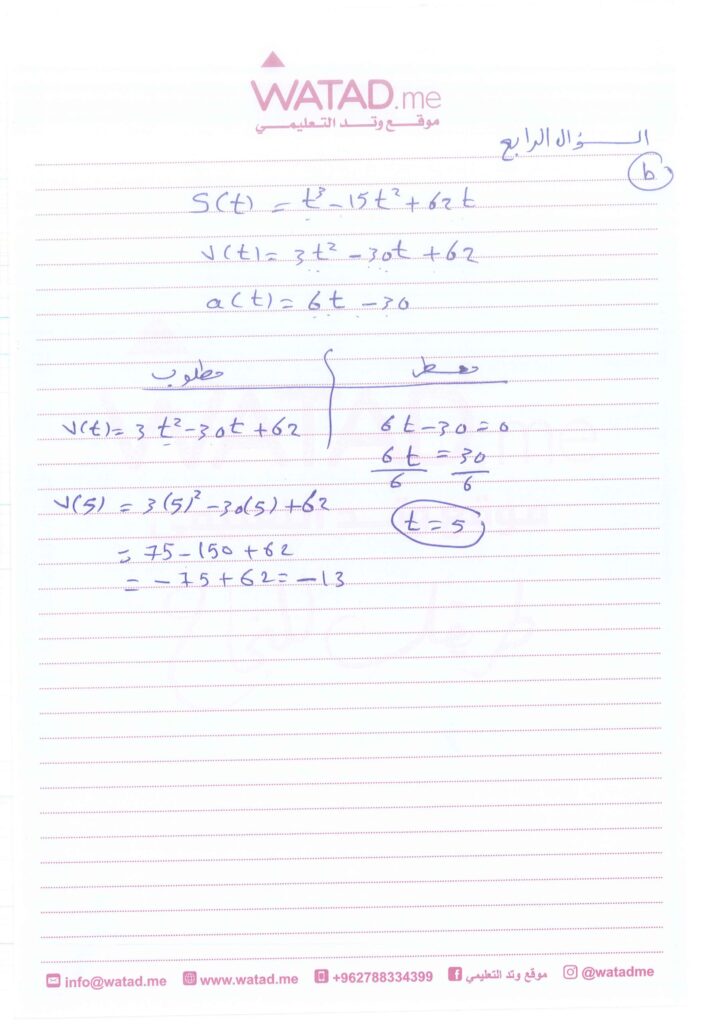 WATAD.me
موقع وتد التعليمي
السؤال الرابع
b
S(t) = t³ - 15t² + 62t
v(t) = 3t² - 30t + 62
a(t) = 6t - 30
معطى
مطلوب
6t - 30 = 0
6t = 30
6 6
t = 5
v(t) = 3t² - 30t + 62
v(5) = 3(5)² - 30(5) + 62
= 75 - 150 + 62
= -75 + 62 = -13
info@watad.me www.watad.me +962788334399 موقع وتد التعليمي @watadme